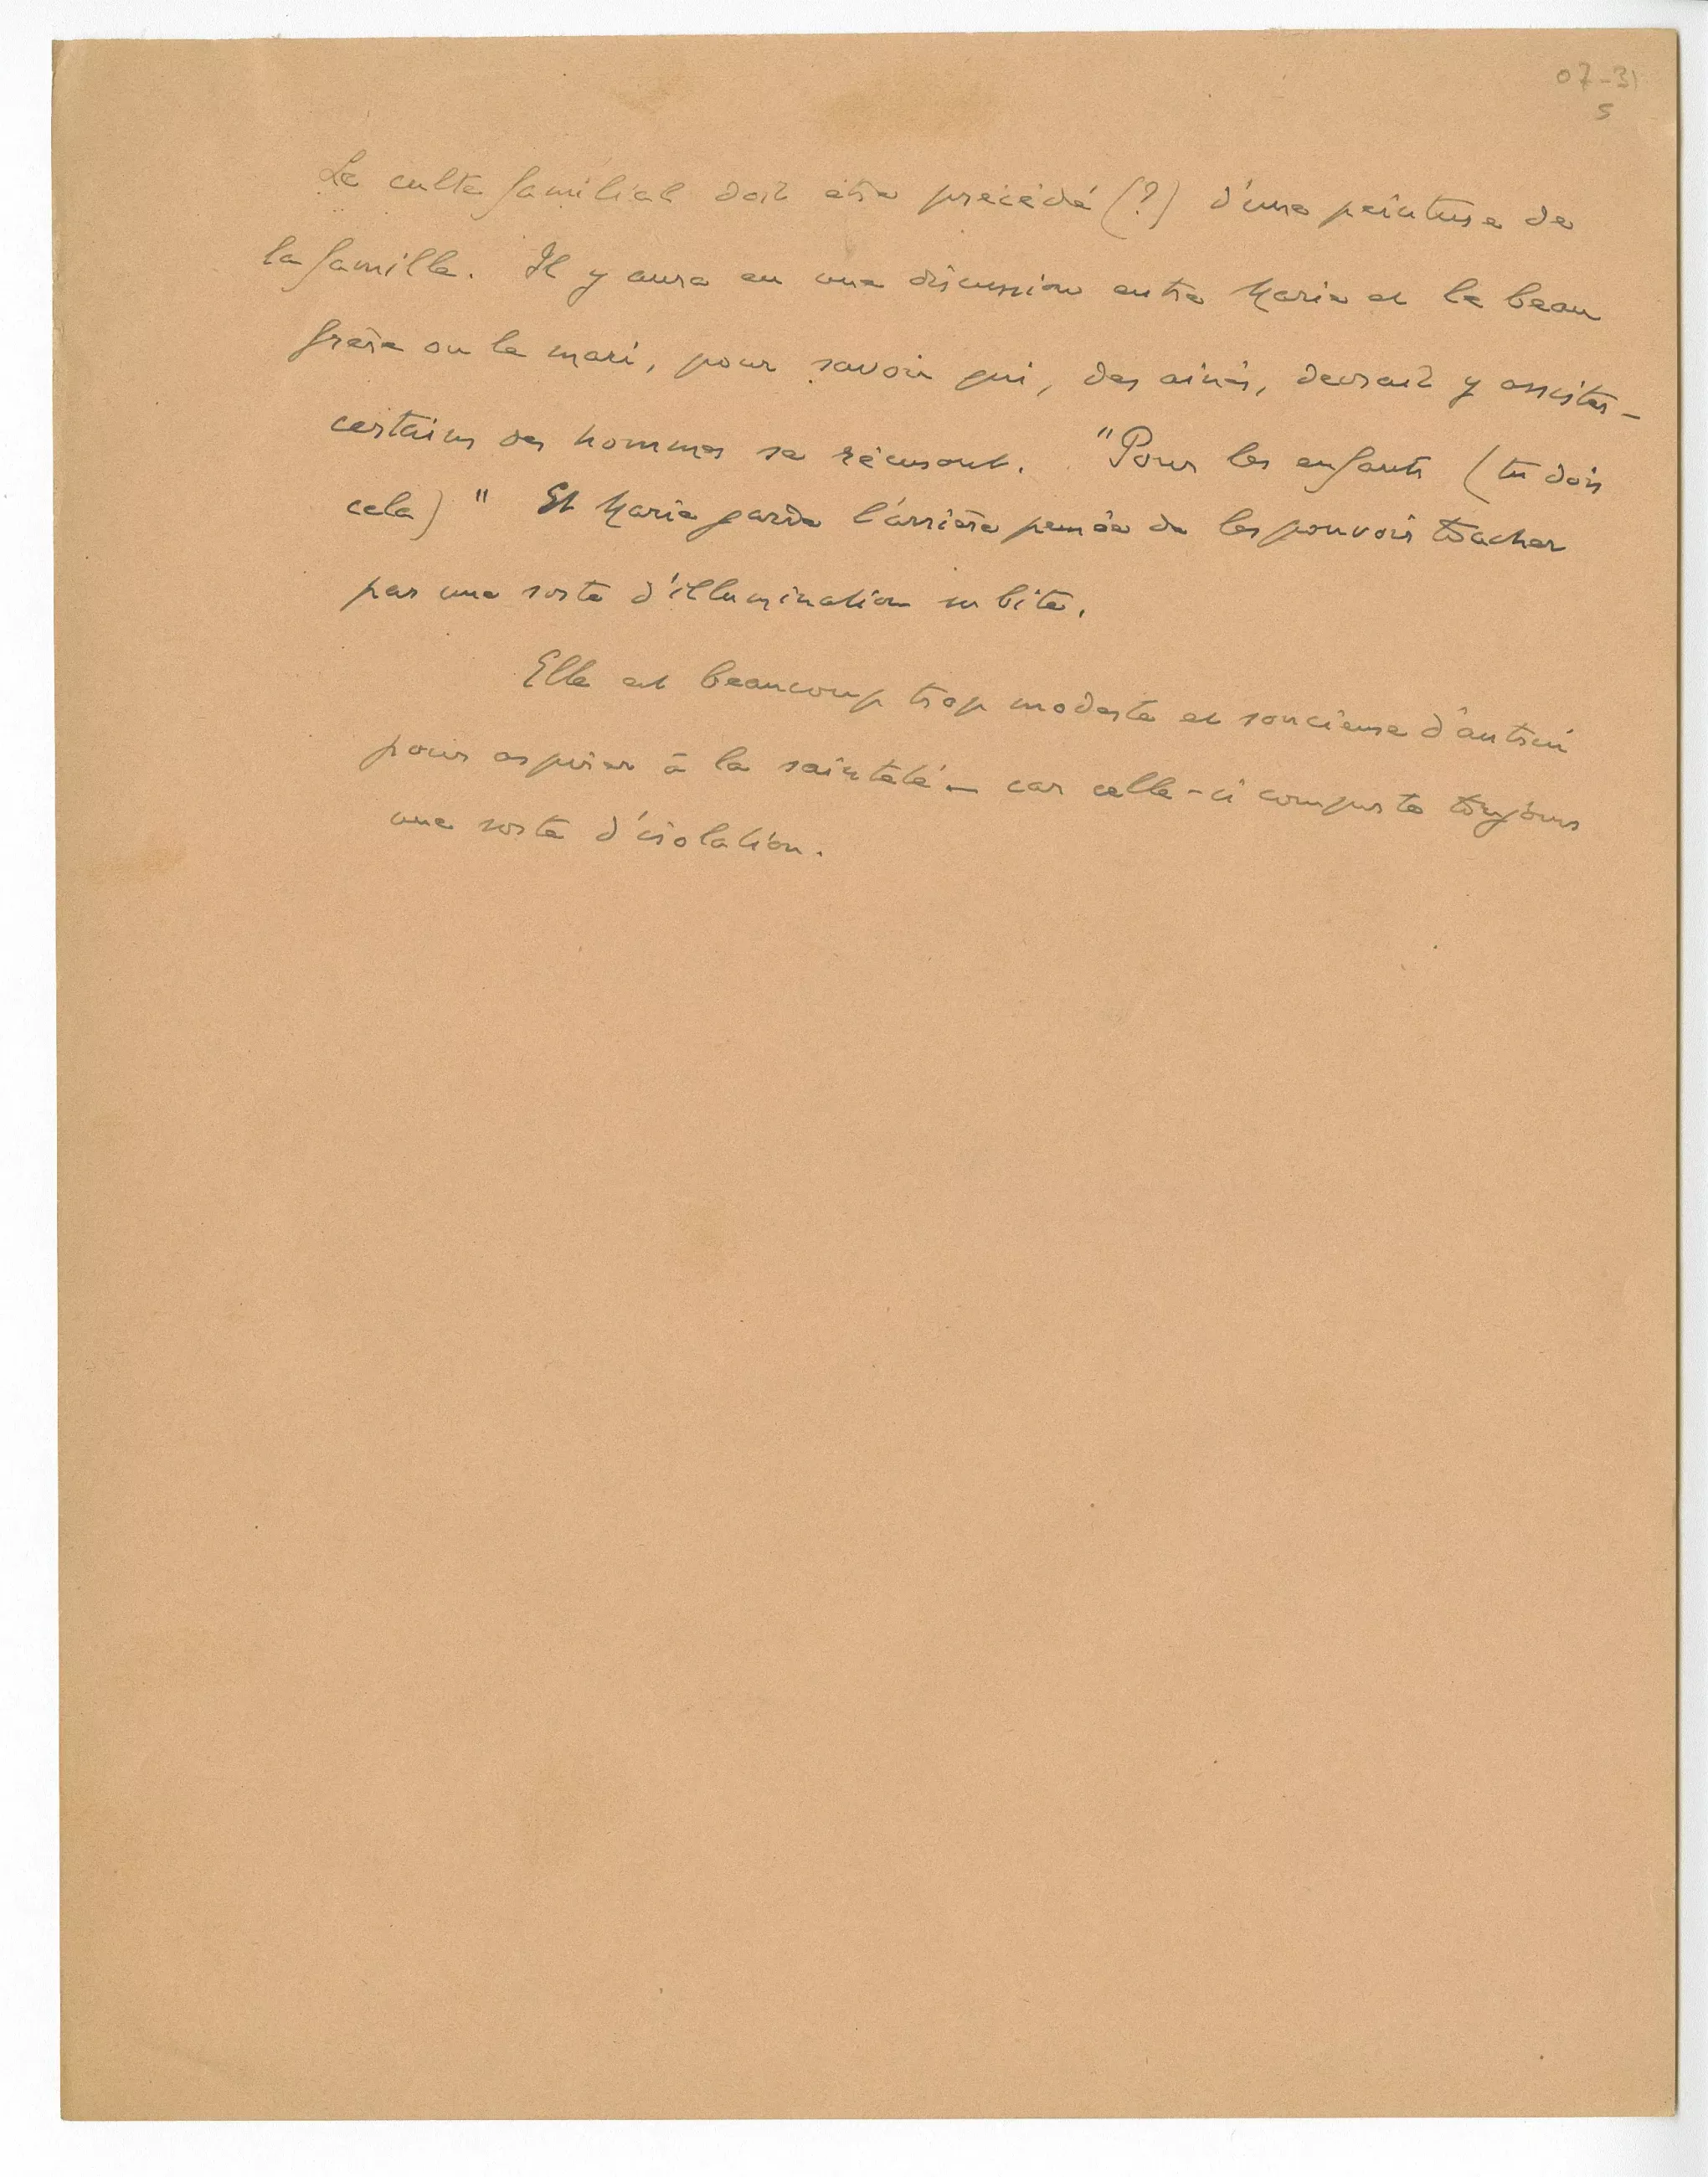 07-31
5
Le culte familial doit être précédé (?) d'une peinture de
la famille. Il y aura eu une discussion entre Marie et le beau
frère ou le mari, pour savoir qui, des ainés, devrait y assister –
certains des hommes se récusent. "Pour les enfants (tu dois
cela)" Et Marie garde l'arrière pensée de les pouvoir toucher
par une sorte d'illumination subite.
Elle est beaucoup trop modeste et soucieuse d'autrui
pour aspirer à la sainteté – car celle-ci comporte toujours
une sorte d'isolation.